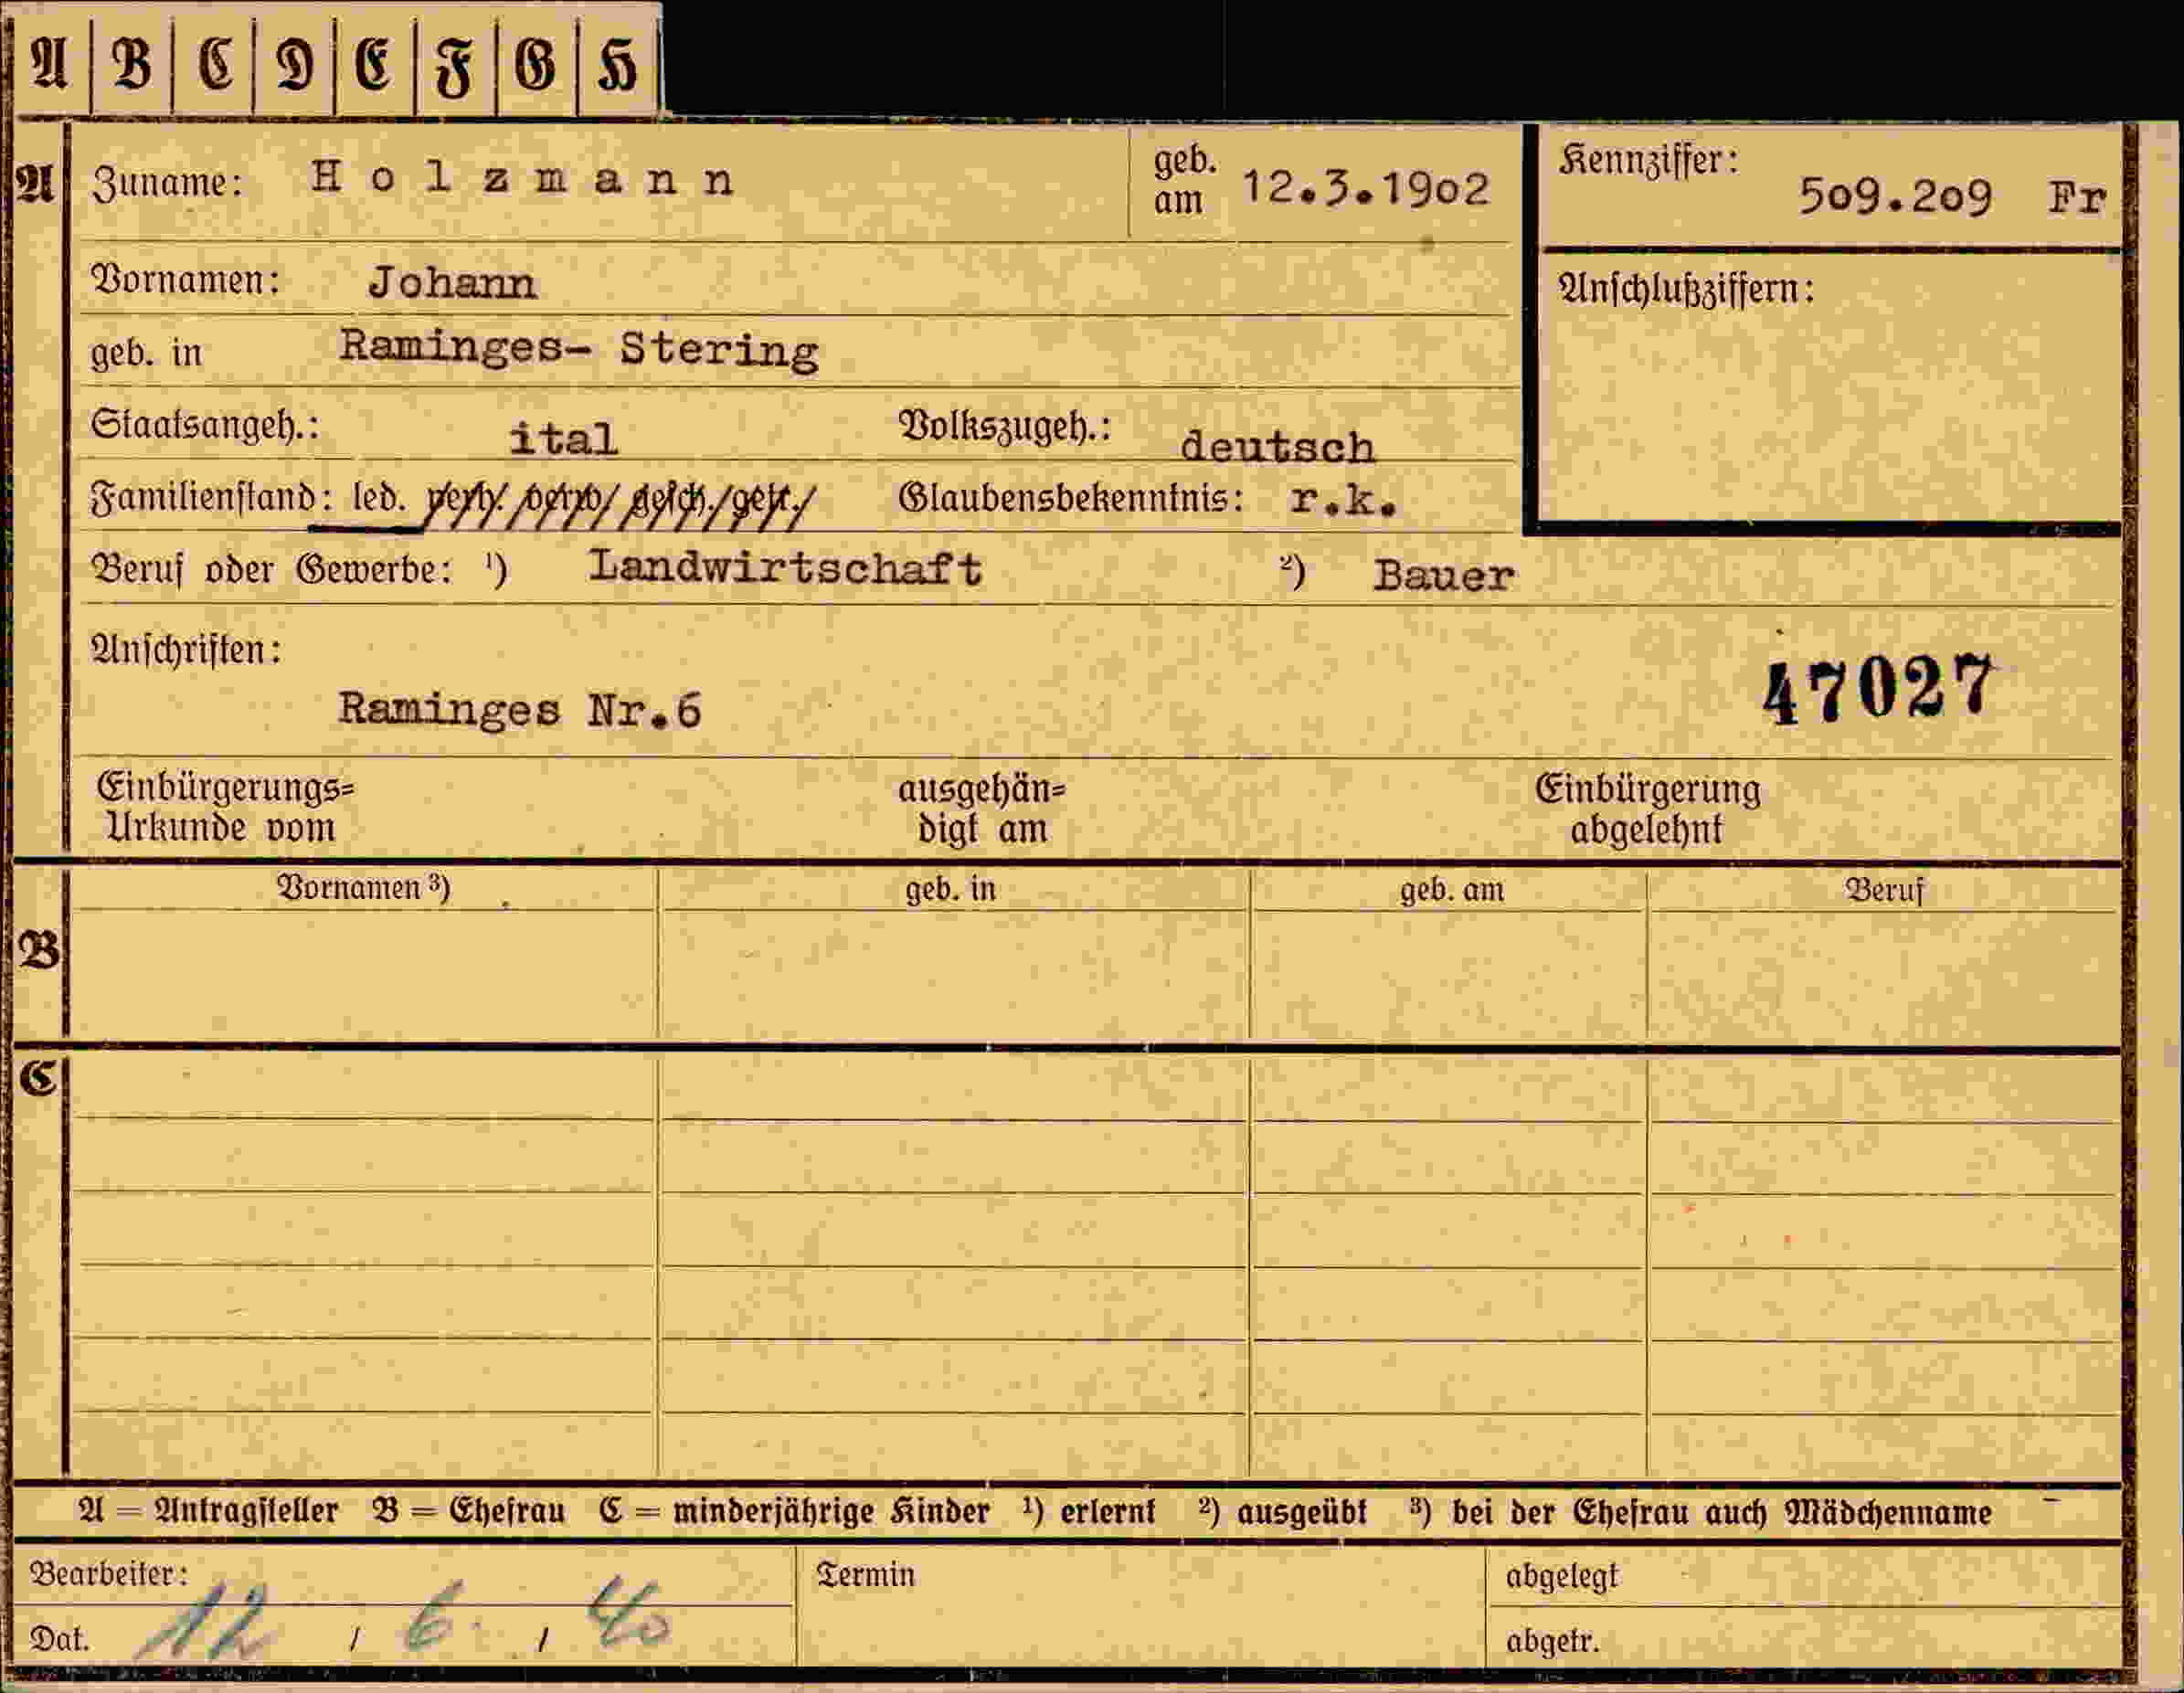 A B C D E F G H
A Zuname: Holzmann geb. am 12.3.1902 Kennziffer: 509.209 Fr
Vornamen: Johann Anschlußziffern:
geb. in Raminges- Stering
Staatsangeh.: ital Volkszugeh.: deutsch
Familienstand: led. verh. verw. gesch. getr. Glaubensbekenntnis: r.k.
Beruf oder Gewerbe: ¹) Landwirtschaft ²) Bauer
Anschriften:
Raminges Nr.6 47027
Einbürgerungs= ausgehän= Einbürgerung
Urkunde vom digt am abgelehnt
Vornamen ³) geb. in geb. am Beruf
B
C
A = Antragsteller B = Ehefrau C = minderjährige Kinder ¹) erlernt ²) ausgeübt ³) bei der Ehefrau auch Mädchenname
Bearbeiter: Termin abgelegt
Dat. 12 / 6. / 40 abgetr.